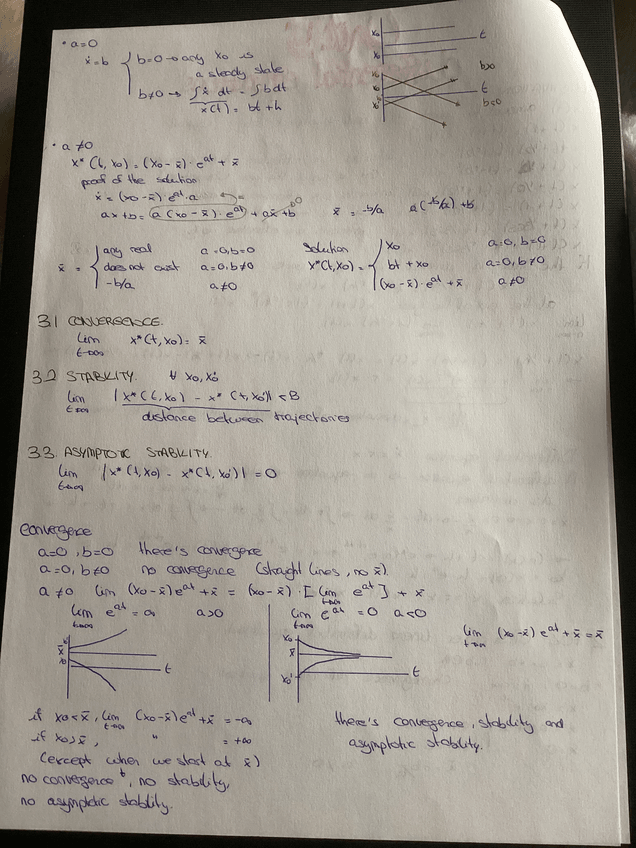 • a=0
ẋ=b { b=0 → any x₀ is
a steady state
b≠0 → ∫ẋ dt = ∫b dt
x(t) = bt + k
x₀
t
x₀
x₀
x₀
b>0
t
• a≠0
x*(t,x₀) = (x₀ - x̄) · eᵃᵗ + x̄
proof of the solution
ẋ = (x₀ - x̄) · eᵃᵗ · a
ax+b = a (x₀ - x̄) · eᵃᵗ + ax̄+b x̄ = -b/a a(-b/a) + b
0
x̄ = { any real a=0, b=0
does not exist a=0, b≠0
-b/a a≠0
solution
x*(t,x₀) = { x₀ a=0, b=0
bt + x₀ a=0, b≠0
(x₀ - x̄) · eᵃᵗ + x̄ a≠0
3.1 CONVERGENCE.
lim x*(t,x₀) = x̄
t→∞
3.2 STABILITY. ∀ x₀, x₀'
lim | x*(t,x₀) - x*(t,x₀')| < B
t→∞
distance between trajectories
3.3. ASYMPTOTIC STABILITY.
lim | x*(t,x₀) - x*(t,x₀')| = 0
t→∞
convergence
a=0, b=0 there's convergence
a=0, b≠0 no convergence (straight lines, no x̄).
a≠0 lim (x₀-x̄)eᵃᵗ + x̄ = (x₀-x̄) · [lim eᵃᵗ] + x̄
t→∞ t→∞
lim eᵃᵗ = ∞ a>0
t→∞
x̄
x₀
t
if x₀<x̄, lim (x₀-x̄)eᵃᵗ + x̄ = -∞
t→∞
if x₀>x̄, " = +∞
(except when we start at x̄)
no convergence, no stability,
no asymptotic stability.
lim eᵃᵗ = 0 a<0
t→∞
x₀
x̄
x₀'
t
lim (x₀-x̄) eᵃᵗ + x̄ = x̄
t→∞
there's convergence, stability and
asymptotic stability.